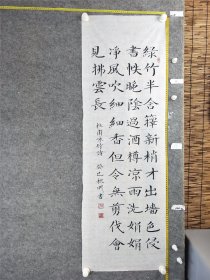 綠竹半含籜新梢才出墻色侵
書帙晚陰過酒樽凉雨洗娟娟
淨風吹細細香但令無剪伐會
見拂雲長
杜甫詠竹詩 癸巳秋 書